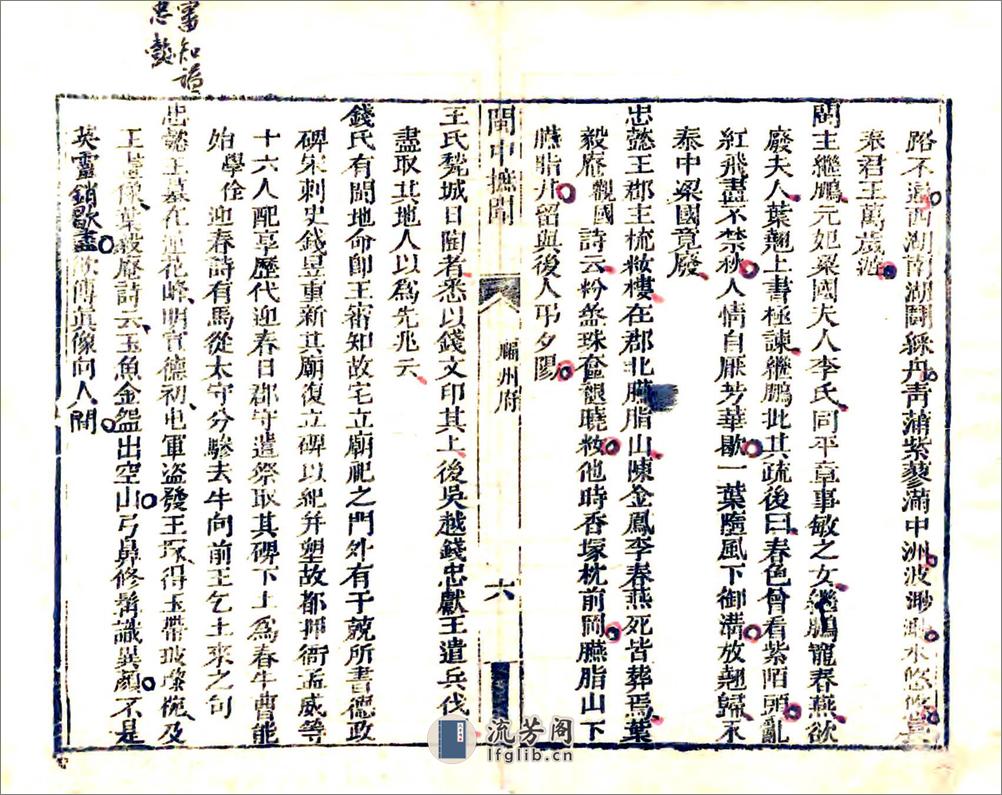 路不遠西湖南湖鬪綵舟青蒲紫蓼滿中洲波渺渺水悠悠長
奉君王萬歲遊
閩主繼鵬元妃梁國夫人李氏同平章事敏之女繼鵬寵春燕欲
廢夫人葉翹上書極諫繼鵬批其疏後曰春色曾看紫陌頭亂
紅飛盡不禁秋人情自厭芳華歇一葉隨風下御溝放翹歸永
泰中梁國竟廢
忠懿王郡主梳妝樓在郡北臙脂山陳金鳳李春燕死皆葬焉葉
毅庵觀國詩云粉盝珠奩覩曉妝他時香塚枕前岡臙脂山下
臙脂井留與後人弔夕陽
閩中摭聞
福州府
六
王氏甃城日陶者悉以錢文印其上後吳越錢忠獻王遣兵伐
盡取其地人以為先兆云
錢氏有閩地命卽王審知故宅立廟祀之門外有于兢所書德政
碑宋刺史錢昱重新其廟復立碑以紀并塑故都押衙孟威等
十六人配享歷代迎春日郡守遣祭取其碑下土為春牛曹能
始學佺迎春詩有馬從太守分驂去牛向前王乞土來之句
忠懿王墓在蓮花峰明宣德初屯軍盜發王塚得玉帶玻瓈椀及
王畫像葉毅庵詩云玉魚金盌出空山弓鼻修髯識異顏不是
英靈銷歇盡欲傳眞像向人間
審知謚
忠懿
流芳阁
lfglib.cn